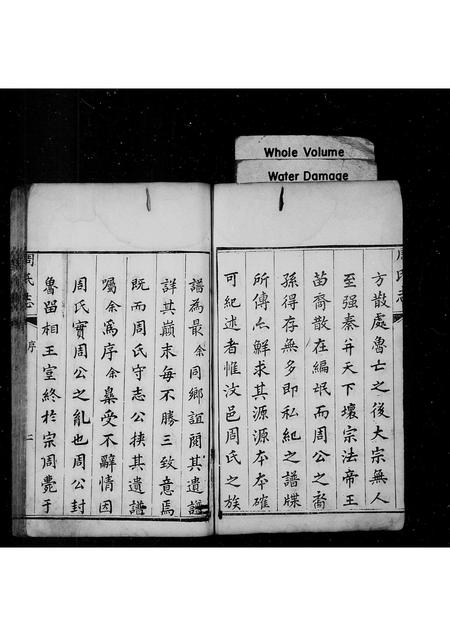 Whole Volume
Water Damage
周氏志
方散處魯亡之後大宗無人
至强秦并天下壞宗法帝王
苗裔散在編氓而周公之裔
孫得存無多即私紀之譜牒
所傳亦鮮求其源源本本確
可紀述者惟汝邑周氏之族
譜為最余同鄉誼閱其遺譜
詳其巔末每不勝三致意焉
既而周氏守志公挾其遺譜
囑余為序余辠受不辭情因
周氏實周公之亂也周公封
魯留相王室終於宗周薨于
周氏志
序
二